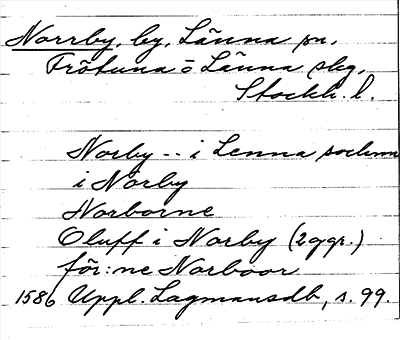 Norrby, by, Länna sn,
Frötuna o Länna slg,
Stockh. l.
Norby -- i Lenna sochnn
i Norby
Norborne
Oluff i Norby (2 ggr.)
för:ne Norboor
1586 Uppl. Lagmansdb, s. 99.